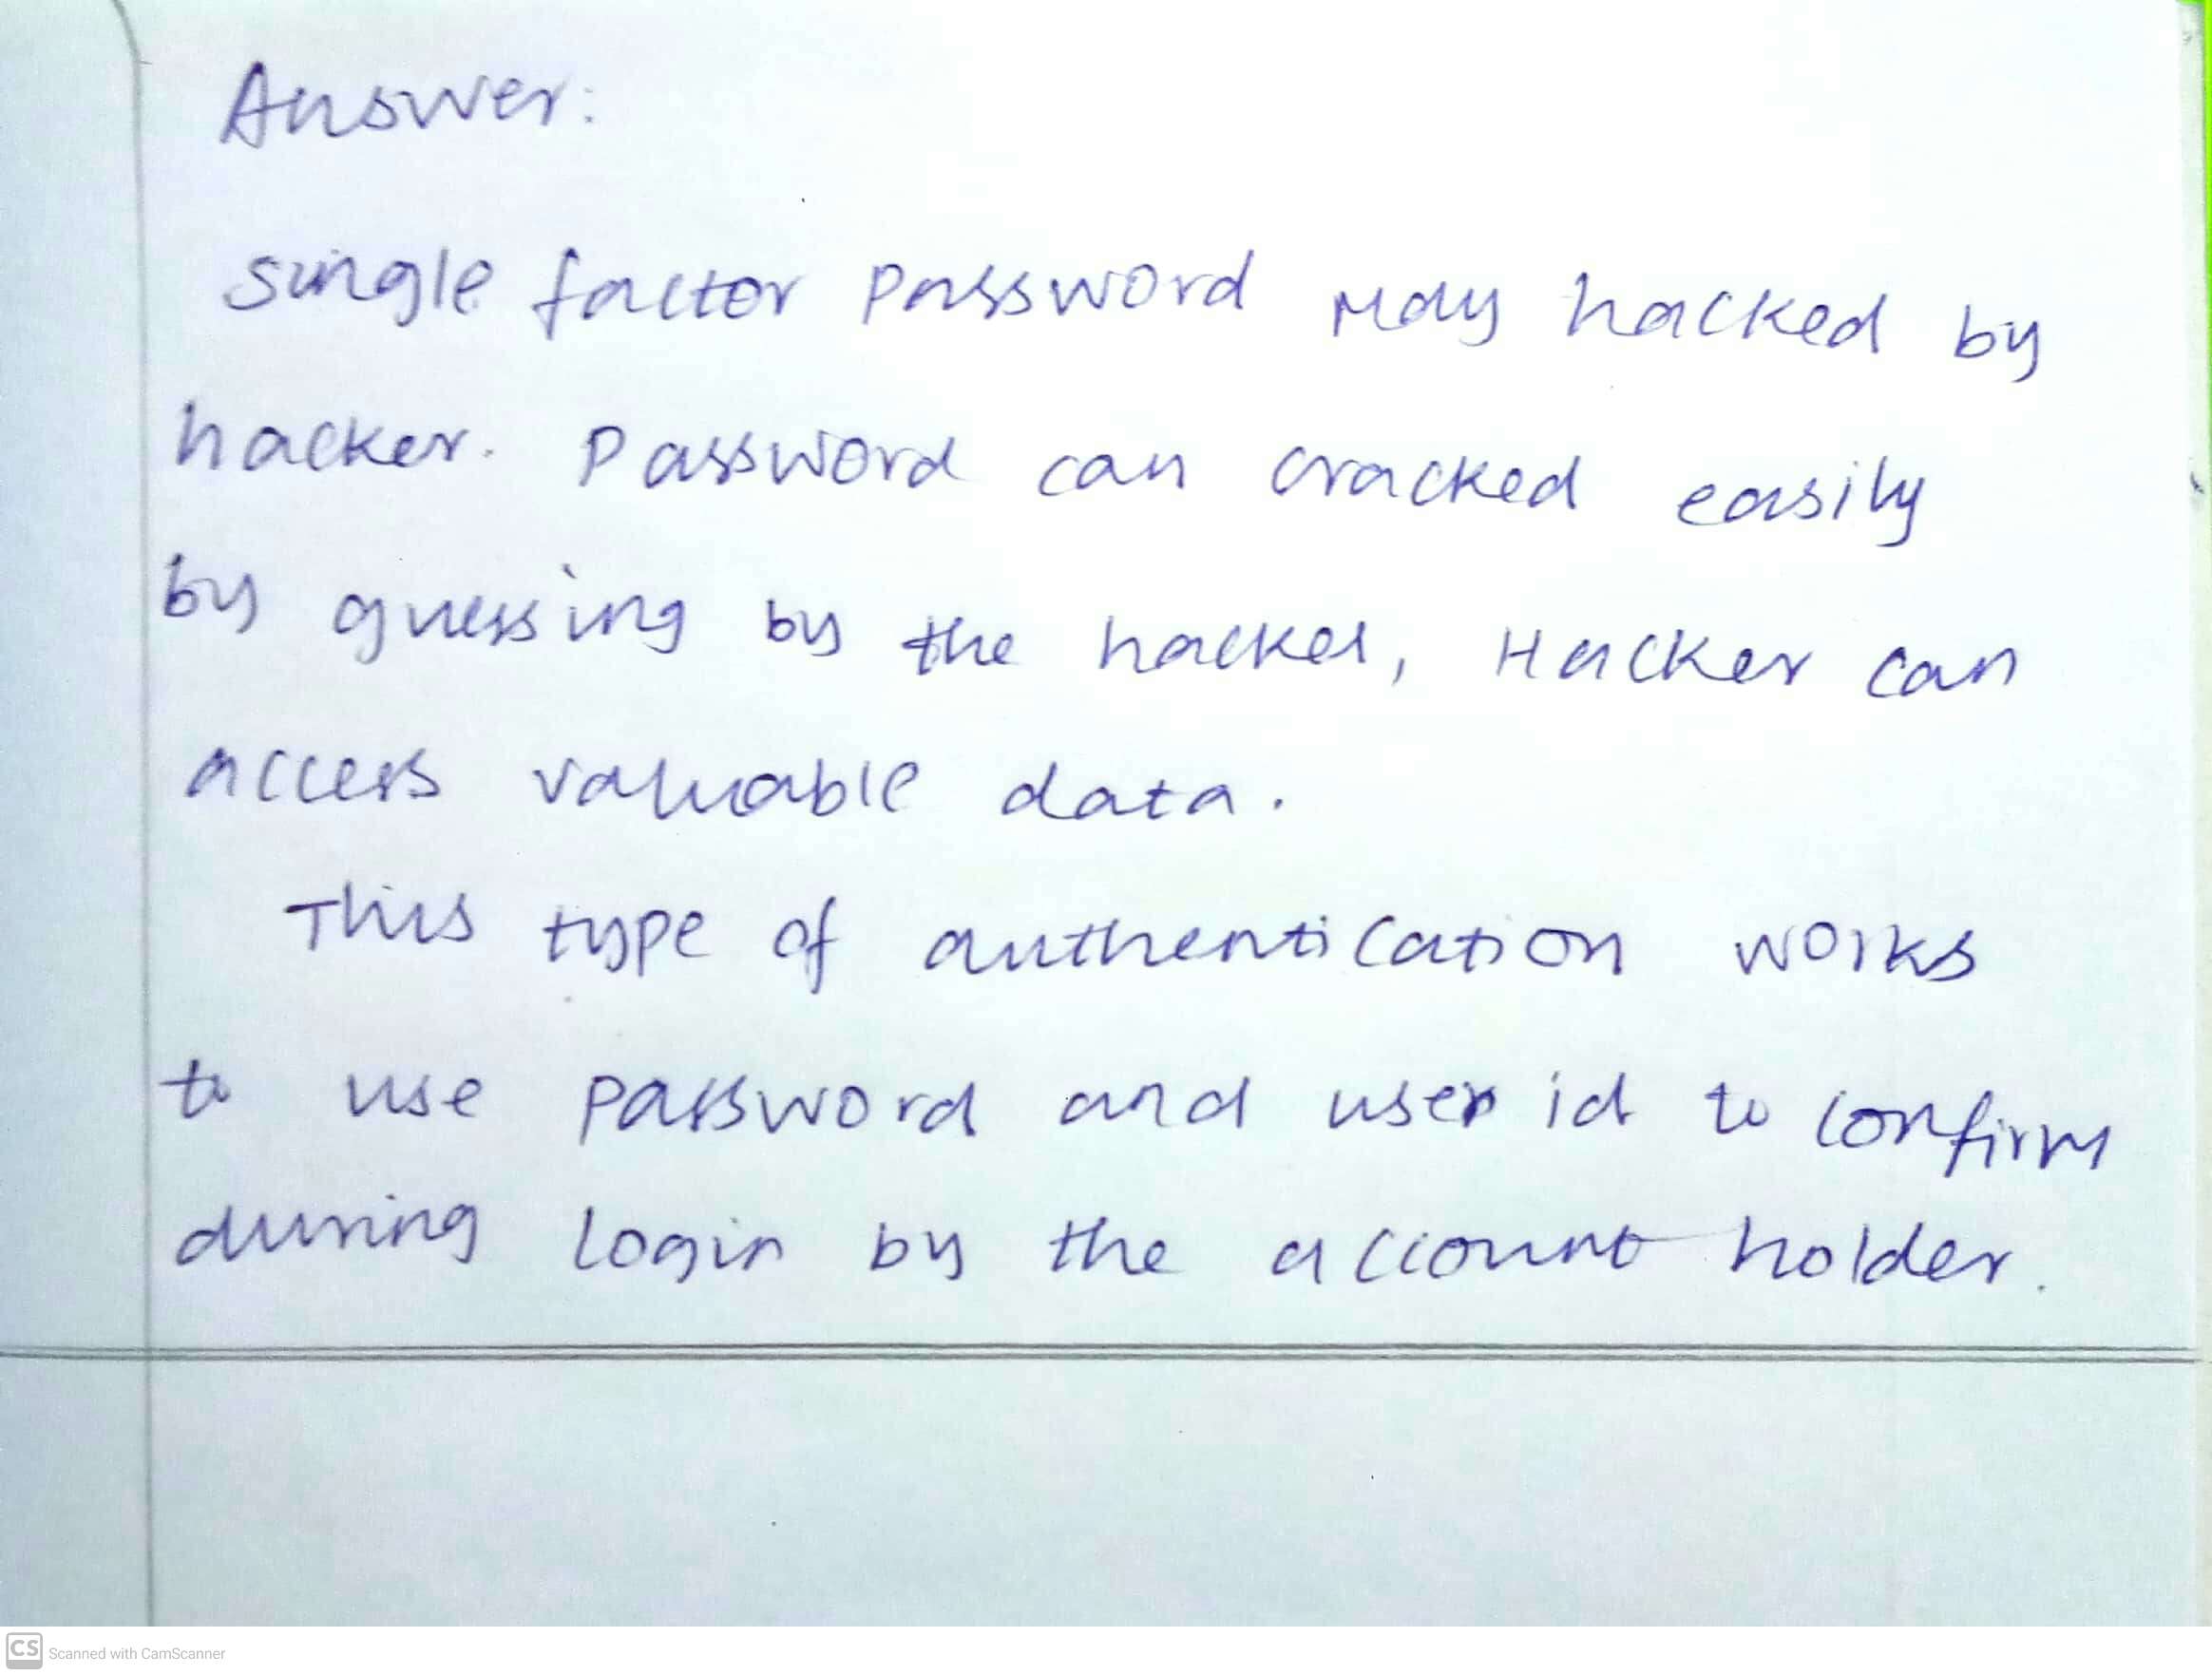 Answer:
single factor password may hacked by
hacker. Password can cracked easily
by guessing by the hacker, Hacker can
access valuable data.
This type of authentication works
to use password and user id to confirm
during login by the account holder.
CS Scanned with CamScanner